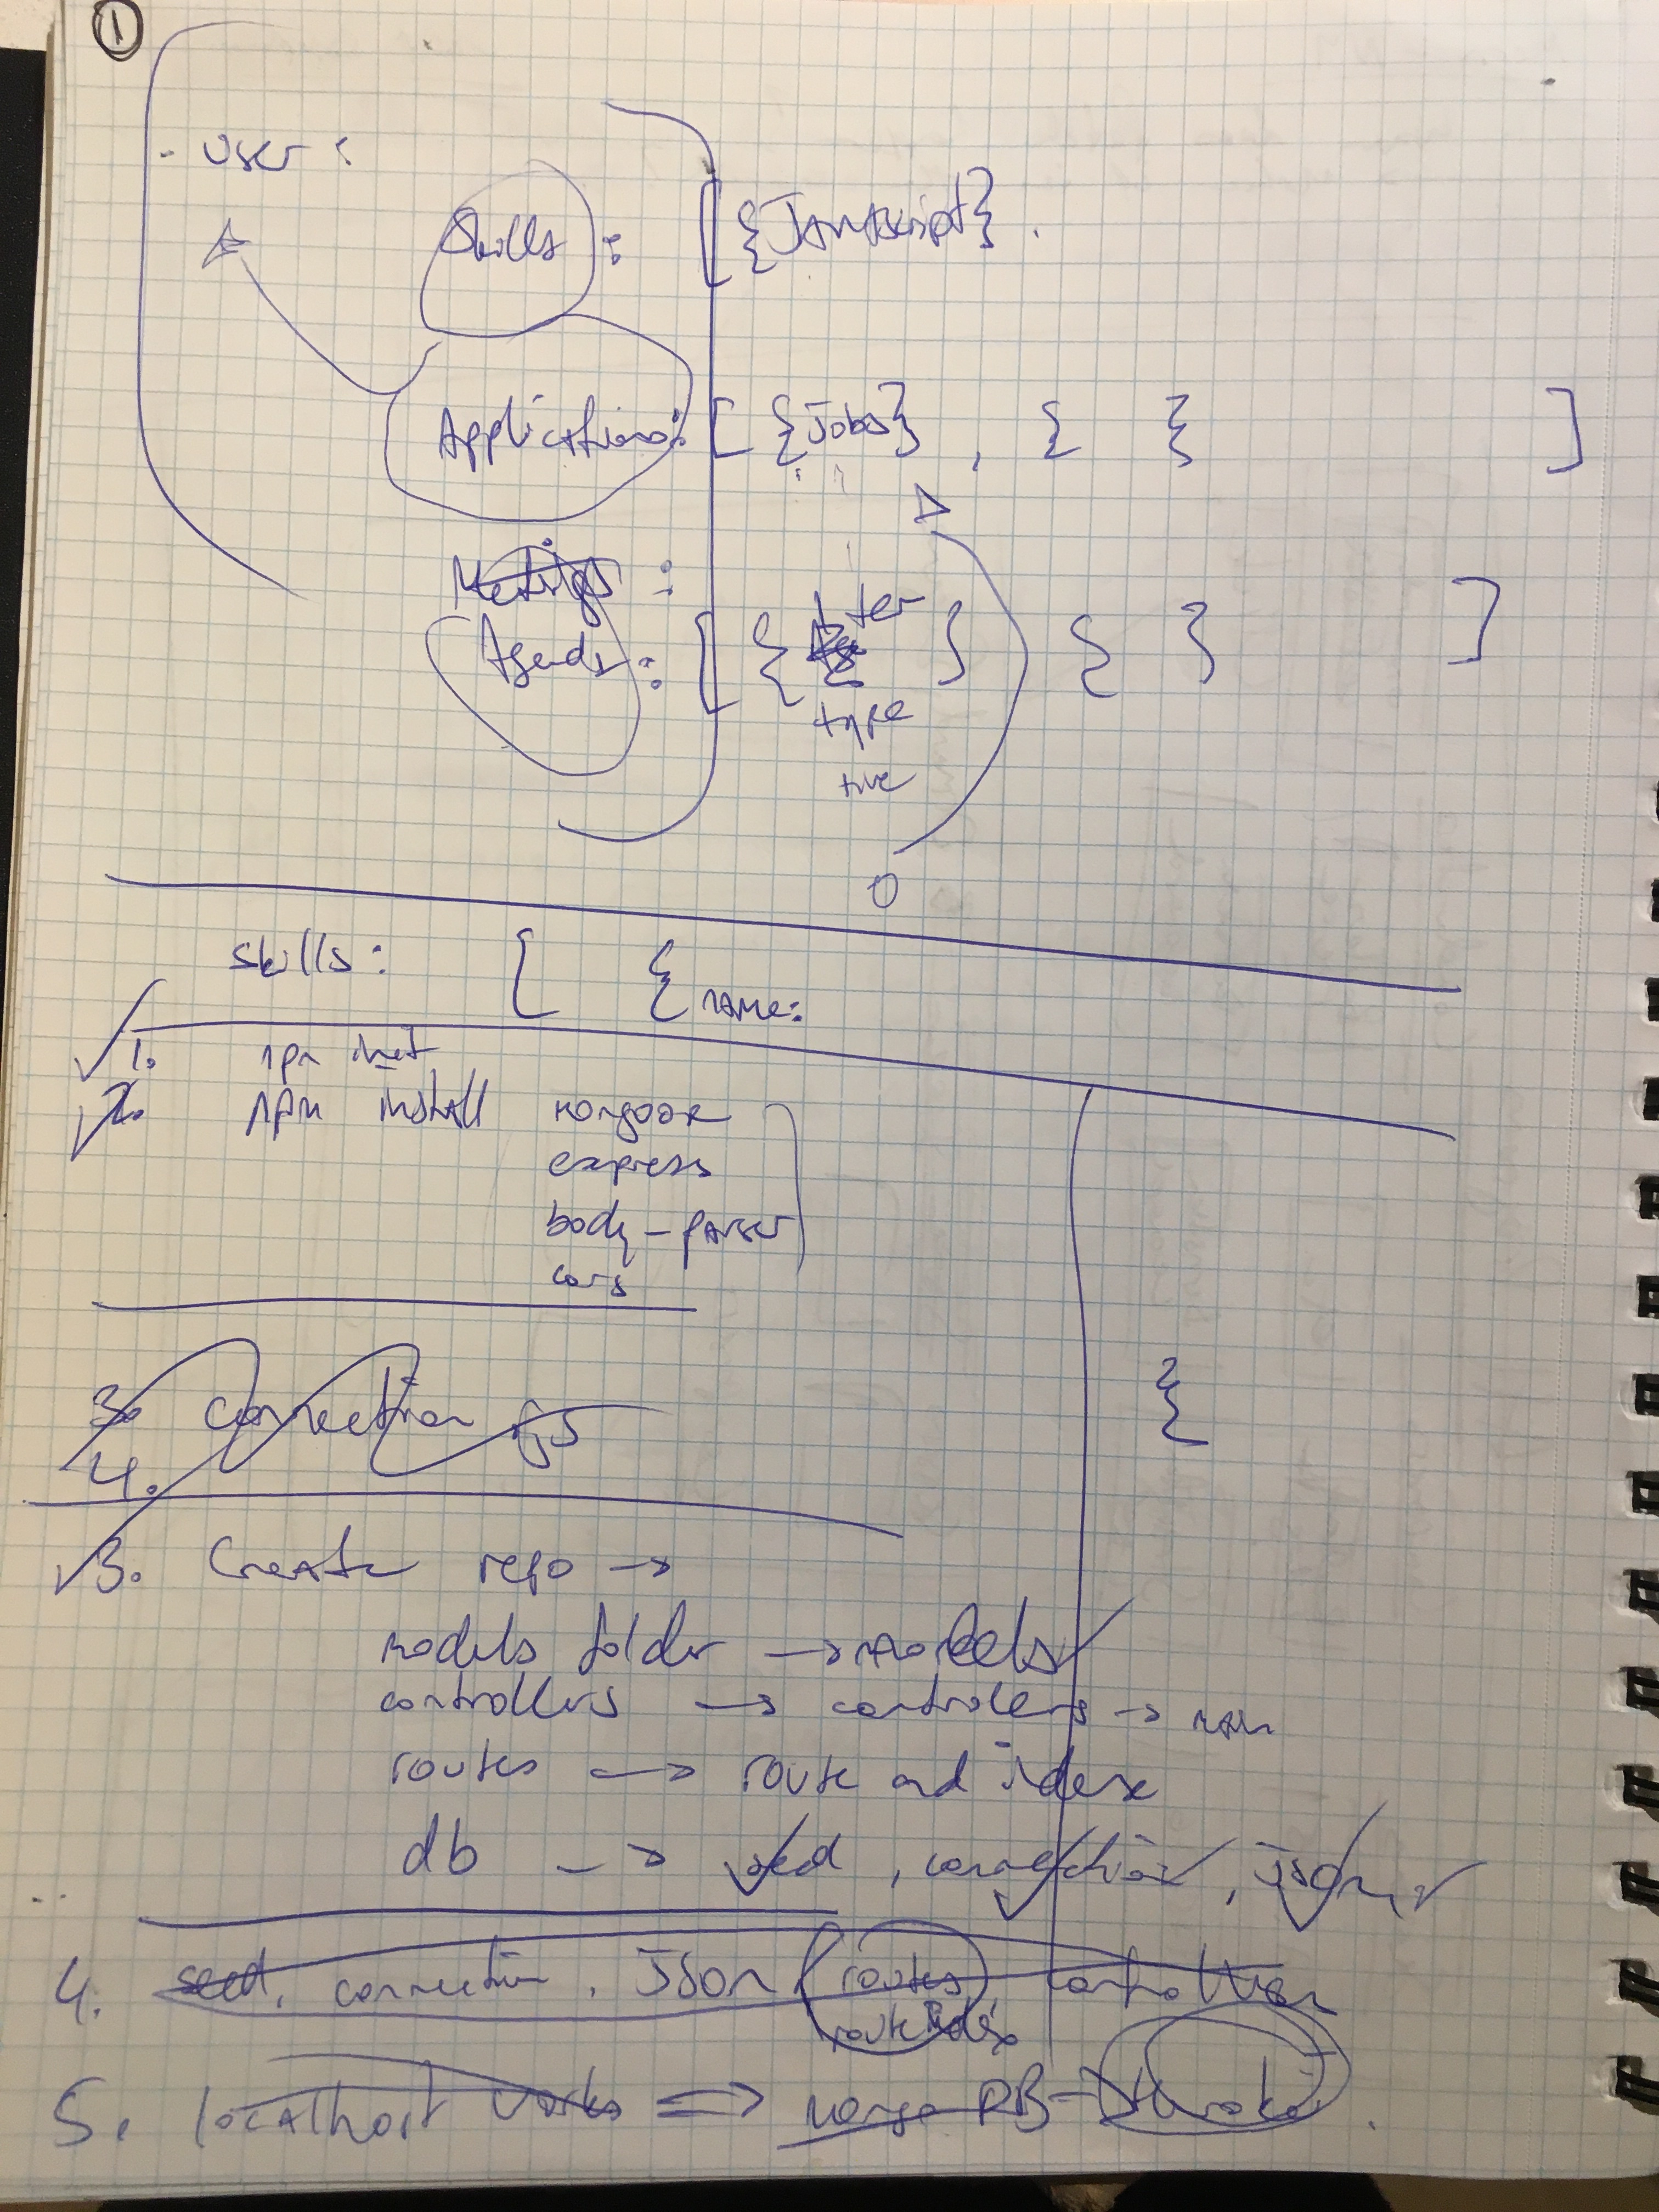 1
- User :
Skills : [ {JavaScript} .
Applications : [ {Jobs} , { } ]
Meetings :
Agenda : [ { } { } ]
type
skills : [ { name:
1. npm init
2. npm install mongoose
express
body-parser
cors
3. connection JS
4.
3. Create repo ->
models folder -> models
controllers -> controlers -> main
routes -> route and index
db -> seed , connection , Json,
4. seed, connection , JSon, routes controller
route index
5. localhost works => mongo DB - Heroku .